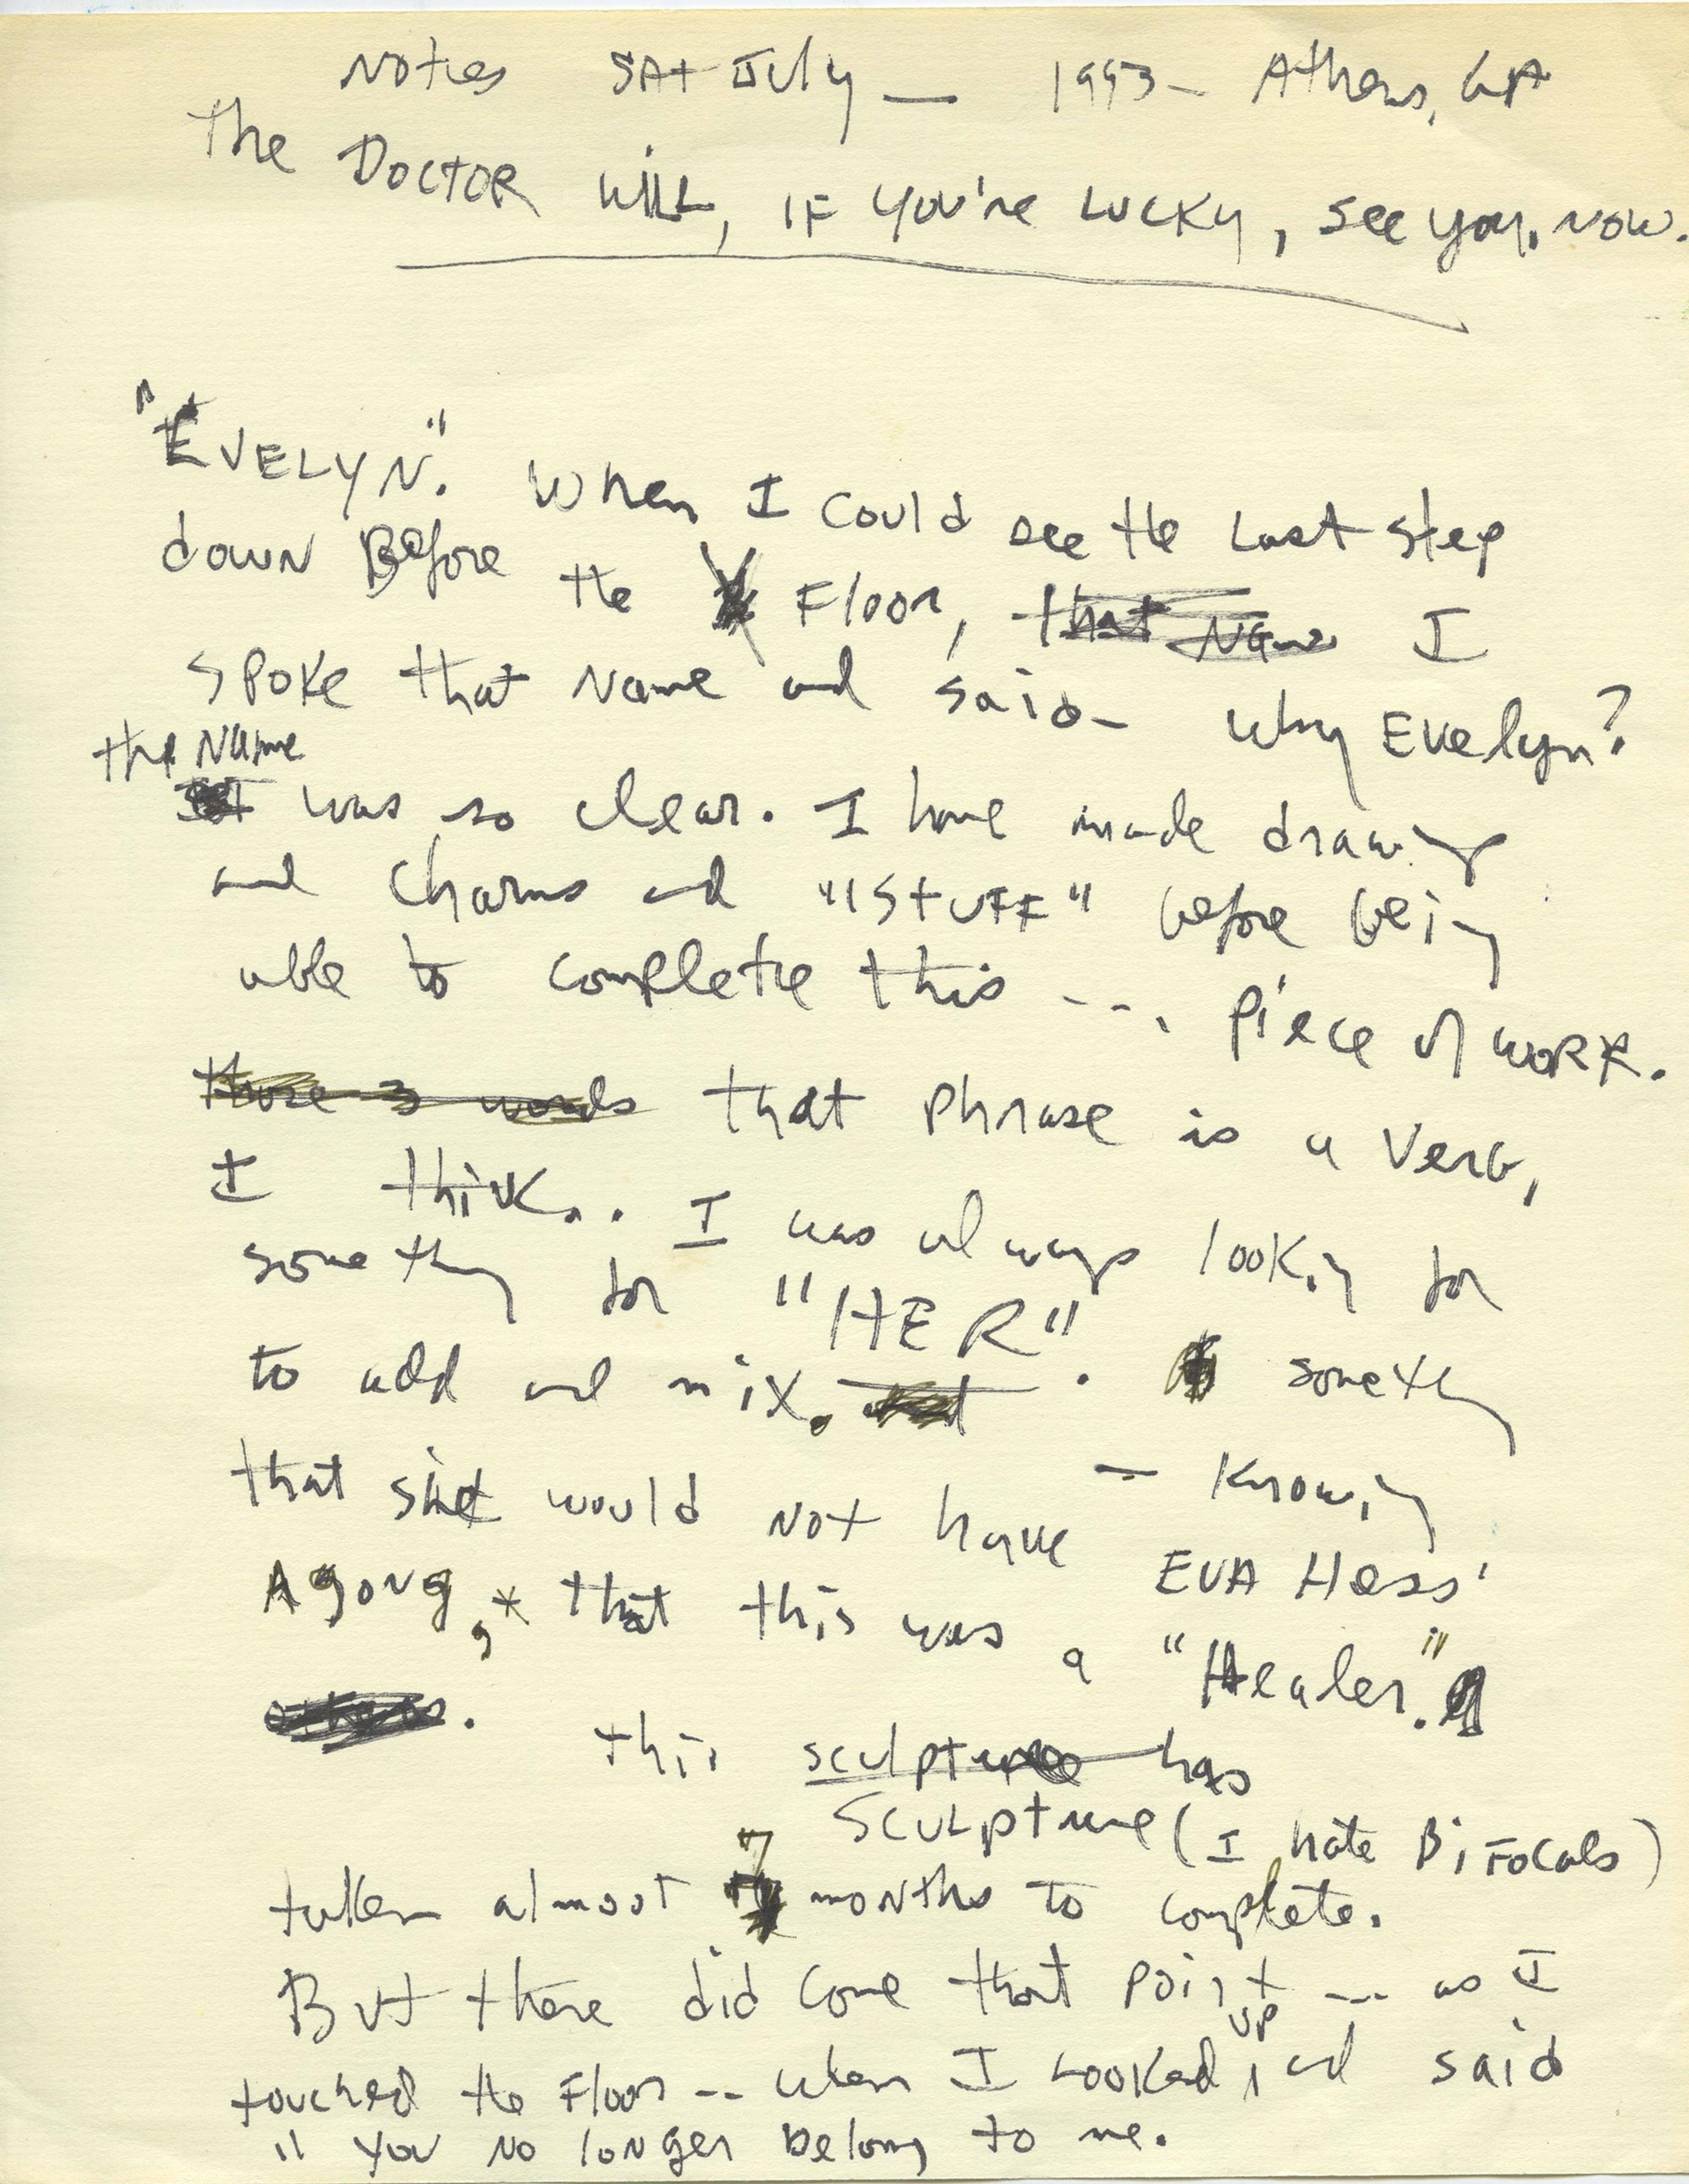 Notes SAt July — 1993 - Athens, GA
The DOCTOR WILL, IF YOU'RE LUCKY, see you, now.
"EVELYN." When I could see the last step
down Before the Floor, that Name I
spoke that Name and said- why Evelyn?
the Name
was so clear. I have made drawings
and charms and "STUFF" before being
able to complete this --. piece of work.
those 3 words that phrase is a verb,
I think.. I was always looking for
something for "HER".
to add and mix. something
that she would not have — Knowing
EVA Hess'
Agony,* that this was a "Healer."
others. this sculpture has
Sculpture (I hate BiFocals)
taken almost 7 months to complete.
But there did come that point --- as I
up
touched the Floor -- when I looked, and said
" you no longer belong to me.